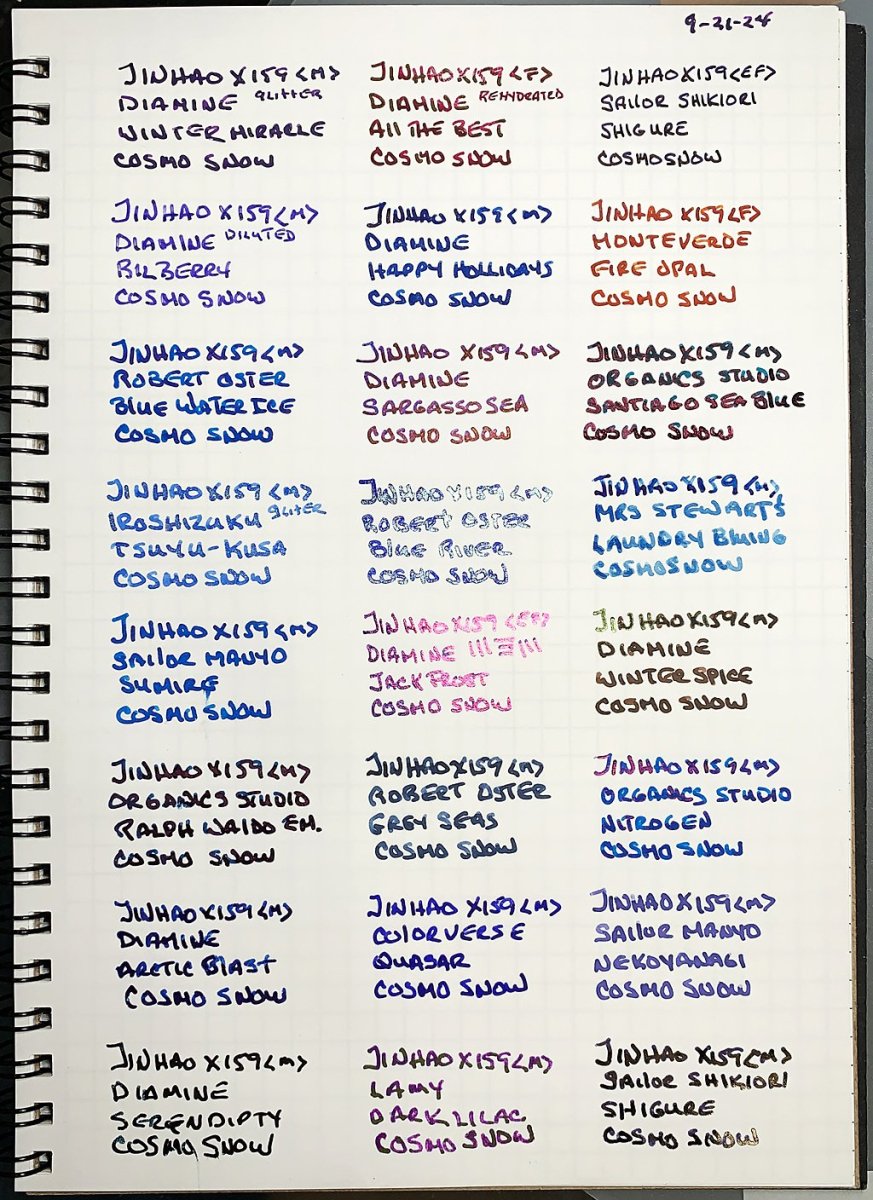 9-21-24
JINHAO X159 <M>
DIAMINE GLITTER
WINTER MIRACLE
COSMO SNOW
JINHAO X159 <F>
DIAMINE REHYDRATED
All THE BEST
COSMO SNOW
JINHAO X159 <EF>
SAILOR SHIKIORI
SHIGURE
COSMO SNOW
JINHAO X159 <M>
DIAMINE DILUTED
BILBERRY
COSMO SNOW
JINHAO X159 <M>
DIAMINE
HAPPY HOLLIDAYS
COSMO SNOW
JINHAO X159 <F>
MONTEVERDE
FIRE OPAL
COSMO SNOW
JINHAO X159 <M>
ROBERT OSTER
Blue WATER ICE
COSMO SNOW
JINHAO X159 <M>
DIAMINE
SARGASSO SEA
COSMO SNOW
JINHAO X159 <M>
ORGANICS STUDIO
SANTIAGO SEA BlUE
COSMO SNOW
JINHAO X159 <M>
IROSHIZUKU GLITER
TSUYU-KUSA
COSMO SNOW
JINHAO X159 <M>
ROBERT OSTER
Blue RIVER
COSMO SNOW
JINHAO X159 <M>
MRS STEWART'S
LAUNDRY BluING
COSMO SNOW
JINHAO X159 <M>
SAILOR MANYO
SUMIRE
COSMO SNOW
JINHAO X159 <EF>
DIAMINE
JACK FROST
COSMO SNOW
JINHAO X159 <M>
DIAMINE
WINTER SPICE
COSMO SNOW
JINHAO X159 <M>
ORGANICS STUDIO
RALPH WALDO EM.
COSMO SNOW
JINHAO X159 <M>
ROBERT OSTER
GREY SEAS
COSMO SNOW
JINHAO X159 <M>
ORGANICS STUDIO
NITROGEN
COSMO SNOW
JINHAO X159 <M>
DIAMINE
ARCTIC BlAST
COSMO SNOW
JINHAO X159 <M>
COlORVERSE
QUASAR
COSMO SNOW
JINHAO X159 <M>
SAILOR MANYO
NEKOYANAGI
COSMO SNOW
JINHAO X159 <M>
DIAMINE
SERENDIPTY
COSMO SNOW
JINHAO X159 <M>
LAMY
DARK LILAC
COSMO SNOW
JINHAO X159 <M>
SAILOR SHIKIORI
SHIGURE
COSMO SNOW